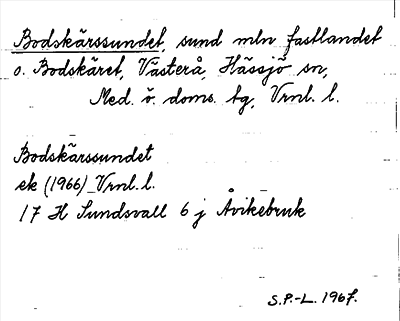 Bodskärssundet, sund mln fastlandet
o. Bodskäret, Västerå, Hässjö sn,
Med. ö. doms. tg, Vrnl. l.
Bodskärssundet
ek (1966) Vrnl. l.
17 H Sundsvall 6 j Åvikebruk
S.P.-L. 1967.